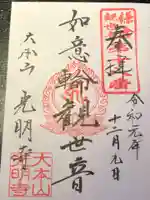 奉拝
令和元年
十二月九日
如意輪観世音
大本山
光明寺
大本山
光明寺